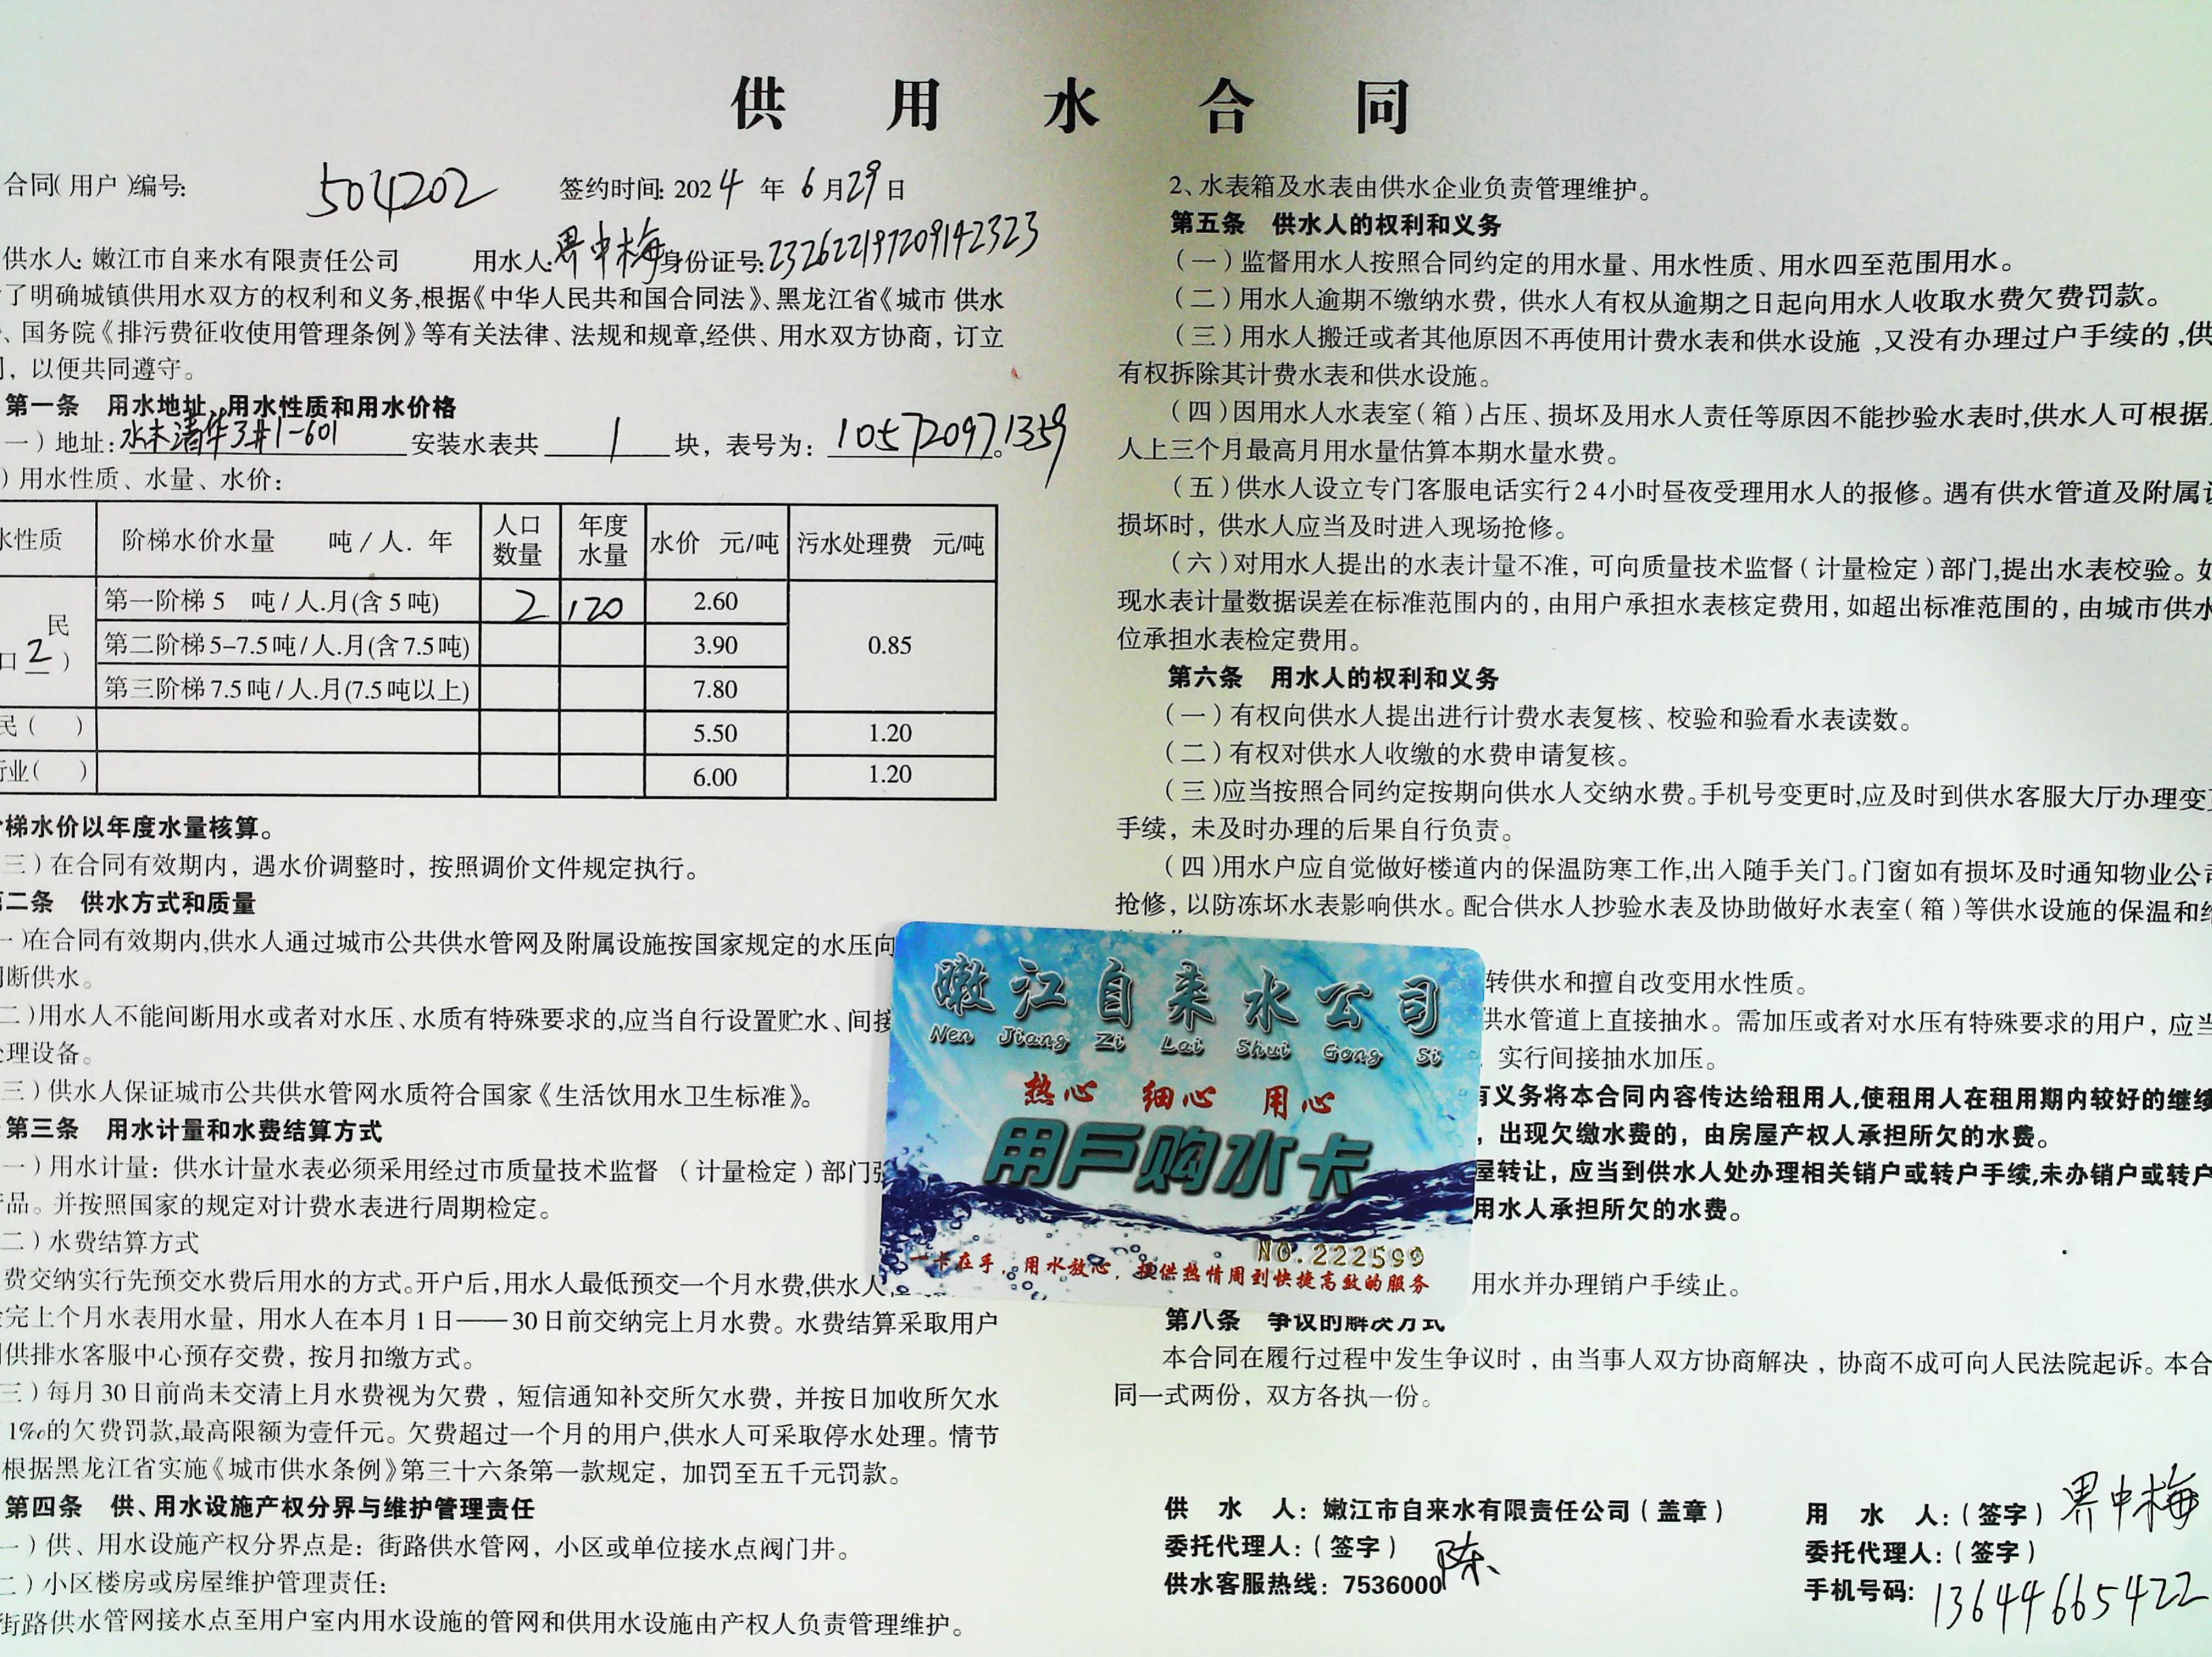 供用水合同
合同(用户)编号: 504202 签约时间: 2024年6月29日
供水人: 嫩江市自来水有限责任公司 用水人: 界中梅 身份证号: 232622197209142323
了明确城镇供用水双方的权利和义务,根据《中华人民共和国合同法》、黑龙江省《城市 供水
、国务院《排污费征收使用管理条例》等有关法律、法规和规章,经供、用水双方协商，订立
，以便共同遵守。
第一条 用水地址、用水性质和用水价格
一）地址: 水木清华3#1-601 安装水表共 1 块，表号为: 105720971359。
）用水性质、水量、水价:
水性质 阶梯水价水量 吨/人.年 人口数量 年度水量 水价 元/吨 污水处理费 元/吨
民 第一阶梯 5 吨/人.月(含5吨) 2 120 2.60
口 2 ) 第二阶梯 5-7.5吨/人.月(含7.5吨) 3.90 0.85
第三阶梯 7.5吨/人.月(7.5吨以上) 7.80
民( ) 5.50 1.20
行业( ) 6.00 1.20
梯水价以年度水量核算。
三）在合同有效期内，遇水价调整时，按照调价文件规定执行。
第二条 供水方式和质量
一)在合同有效期内,供水人通过城市公共供水管网及附属设施按国家规定的水压向
间断供水。
二)用水人不能间断用水或者对水压、水质有特殊要求的,应当自行设置贮水、间接
处理设备。
三）供水人保证城市公共供水管网水质符合国家《生活饮用水卫生标准》。
第三条 用水计量和水费结算方式
一）用水计量：供水计量水表必须采用经过市质量技术监督 （计量检定）部门强
产品。并按照国家的规定对计费水表进行周期检定。
二）水费结算方式
费交纳实行先预交水费后用水的方式。开户后,用水人最低预交一个月水费,供水人
完上个月水表用水量，用水人在本月1日——30日前交纳完上月水费。水费结算采取用户
供排水客服中心预存交费，按月扣缴方式。
三）每月30日前尚未交清上月水费视为欠费，短信通知补交所欠水费，并按日加收所欠水
1‰的欠费罚款,最高限额为壹仟元。欠费超过一个月的用户,供水人可采取停水处理。情节
根据黑龙江省实施《城市供水条例》第三十六条第一款规定，加罚至五千元罚款。
第四条 供、用水设施产权分界与维护管理责任
一）供、用水设施产权分界点是：街路供水管网，小区或单位接水点阀门井。
二）小区楼房或房屋维护管理责任:
街路供水管网接水点至用户室内用水设施的管网和供用水设施由产权人负责管理维护。
2、水表箱及水表由供水企业负责管理维护。
第五条 供水人的权利和义务
（一）监督用水人按照合同约定的用水量、用水性质、用水四至范围用水。
（二）用水人逾期不缴纳水费，供水人有权从逾期之日起向用水人收取水费欠费罚款。
（三）用水人搬迁或者其他原因不再使用计费水表和供水设施,又没有办理过户手续的,供
有权拆除其计费水表和供水设施。
（四）因用水人水表室（箱）占压、损坏及用水人责任等原因不能抄验水表时,供水人可根据
人上三个月最高月用水量估算本期水量水费。
（五）供水人设立专门客服电话实行24小时昼夜受理用水人的报修。遇有供水管道及附属设
损坏时，供水人应当及时进入现场抢修。
（六）对用水人提出的水表计量不准，可向质量技术监督（计量检定）部门,提出水表校验。如
现水表计量数据误差在标准范围内的，由用户承担水表核定费用，如超出标准范围的，由城市供水
位承担水表检定费用。
第六条 用水人的权利和义务
（一）有权向供水人提出进行计费水表复核、校验和验看水表读数。
（二）有权对供水人收缴的水费申请复核。
（三）应当按照合同约定按期向供水人交纳水费。手机号变更时,应及时到供水客服大厅办理变更
手续，未及时办理的后果自行负责。
（四）用水户应自觉做好楼道内的保温防寒工作,出入随手关门。门窗如有损坏及时通知物业公司
抢修，以防冻坏水表影响供水。配合供水人抄验水表及协助做好水表室（箱）等供水设施的保温和
转供水和擅自改变用水性质。
供水管道上直接抽水。需加压或者对水压有特殊要求的用户，应当
实行间接抽水加压。
有义务将本合同内容传达给租用人,使租用人在租用期内较好的继续
，出现欠缴水费的，由房屋产权人承担所欠的水费。
屋转让，应当到供水人处办理相关销户或转户手续,未办销户或转户
用水人承担所欠的水费。
用水并办理销户手续止。
第八条 争议的解决方式
本合同在履行过程中发生争议时，由当事人双方协商解决，协商不成可向人民法院起诉。本合
同一式两份，双方各执一份。
供 水 人：嫩江市自来水有限责任公司（盖章） 用 水 人:（签字）界中梅
委托代理人:（签字）陈 委托代理人:（签字）
供水客服热线：7536000 手机号码: 13644665422
嫩江自来水公司
Nen Jiang Zi Lai Shui Gong Si
热心 细心 用心
用户购水卡
NO.222599
一卡在手，用水放心，提供热情周到快捷高效的服务